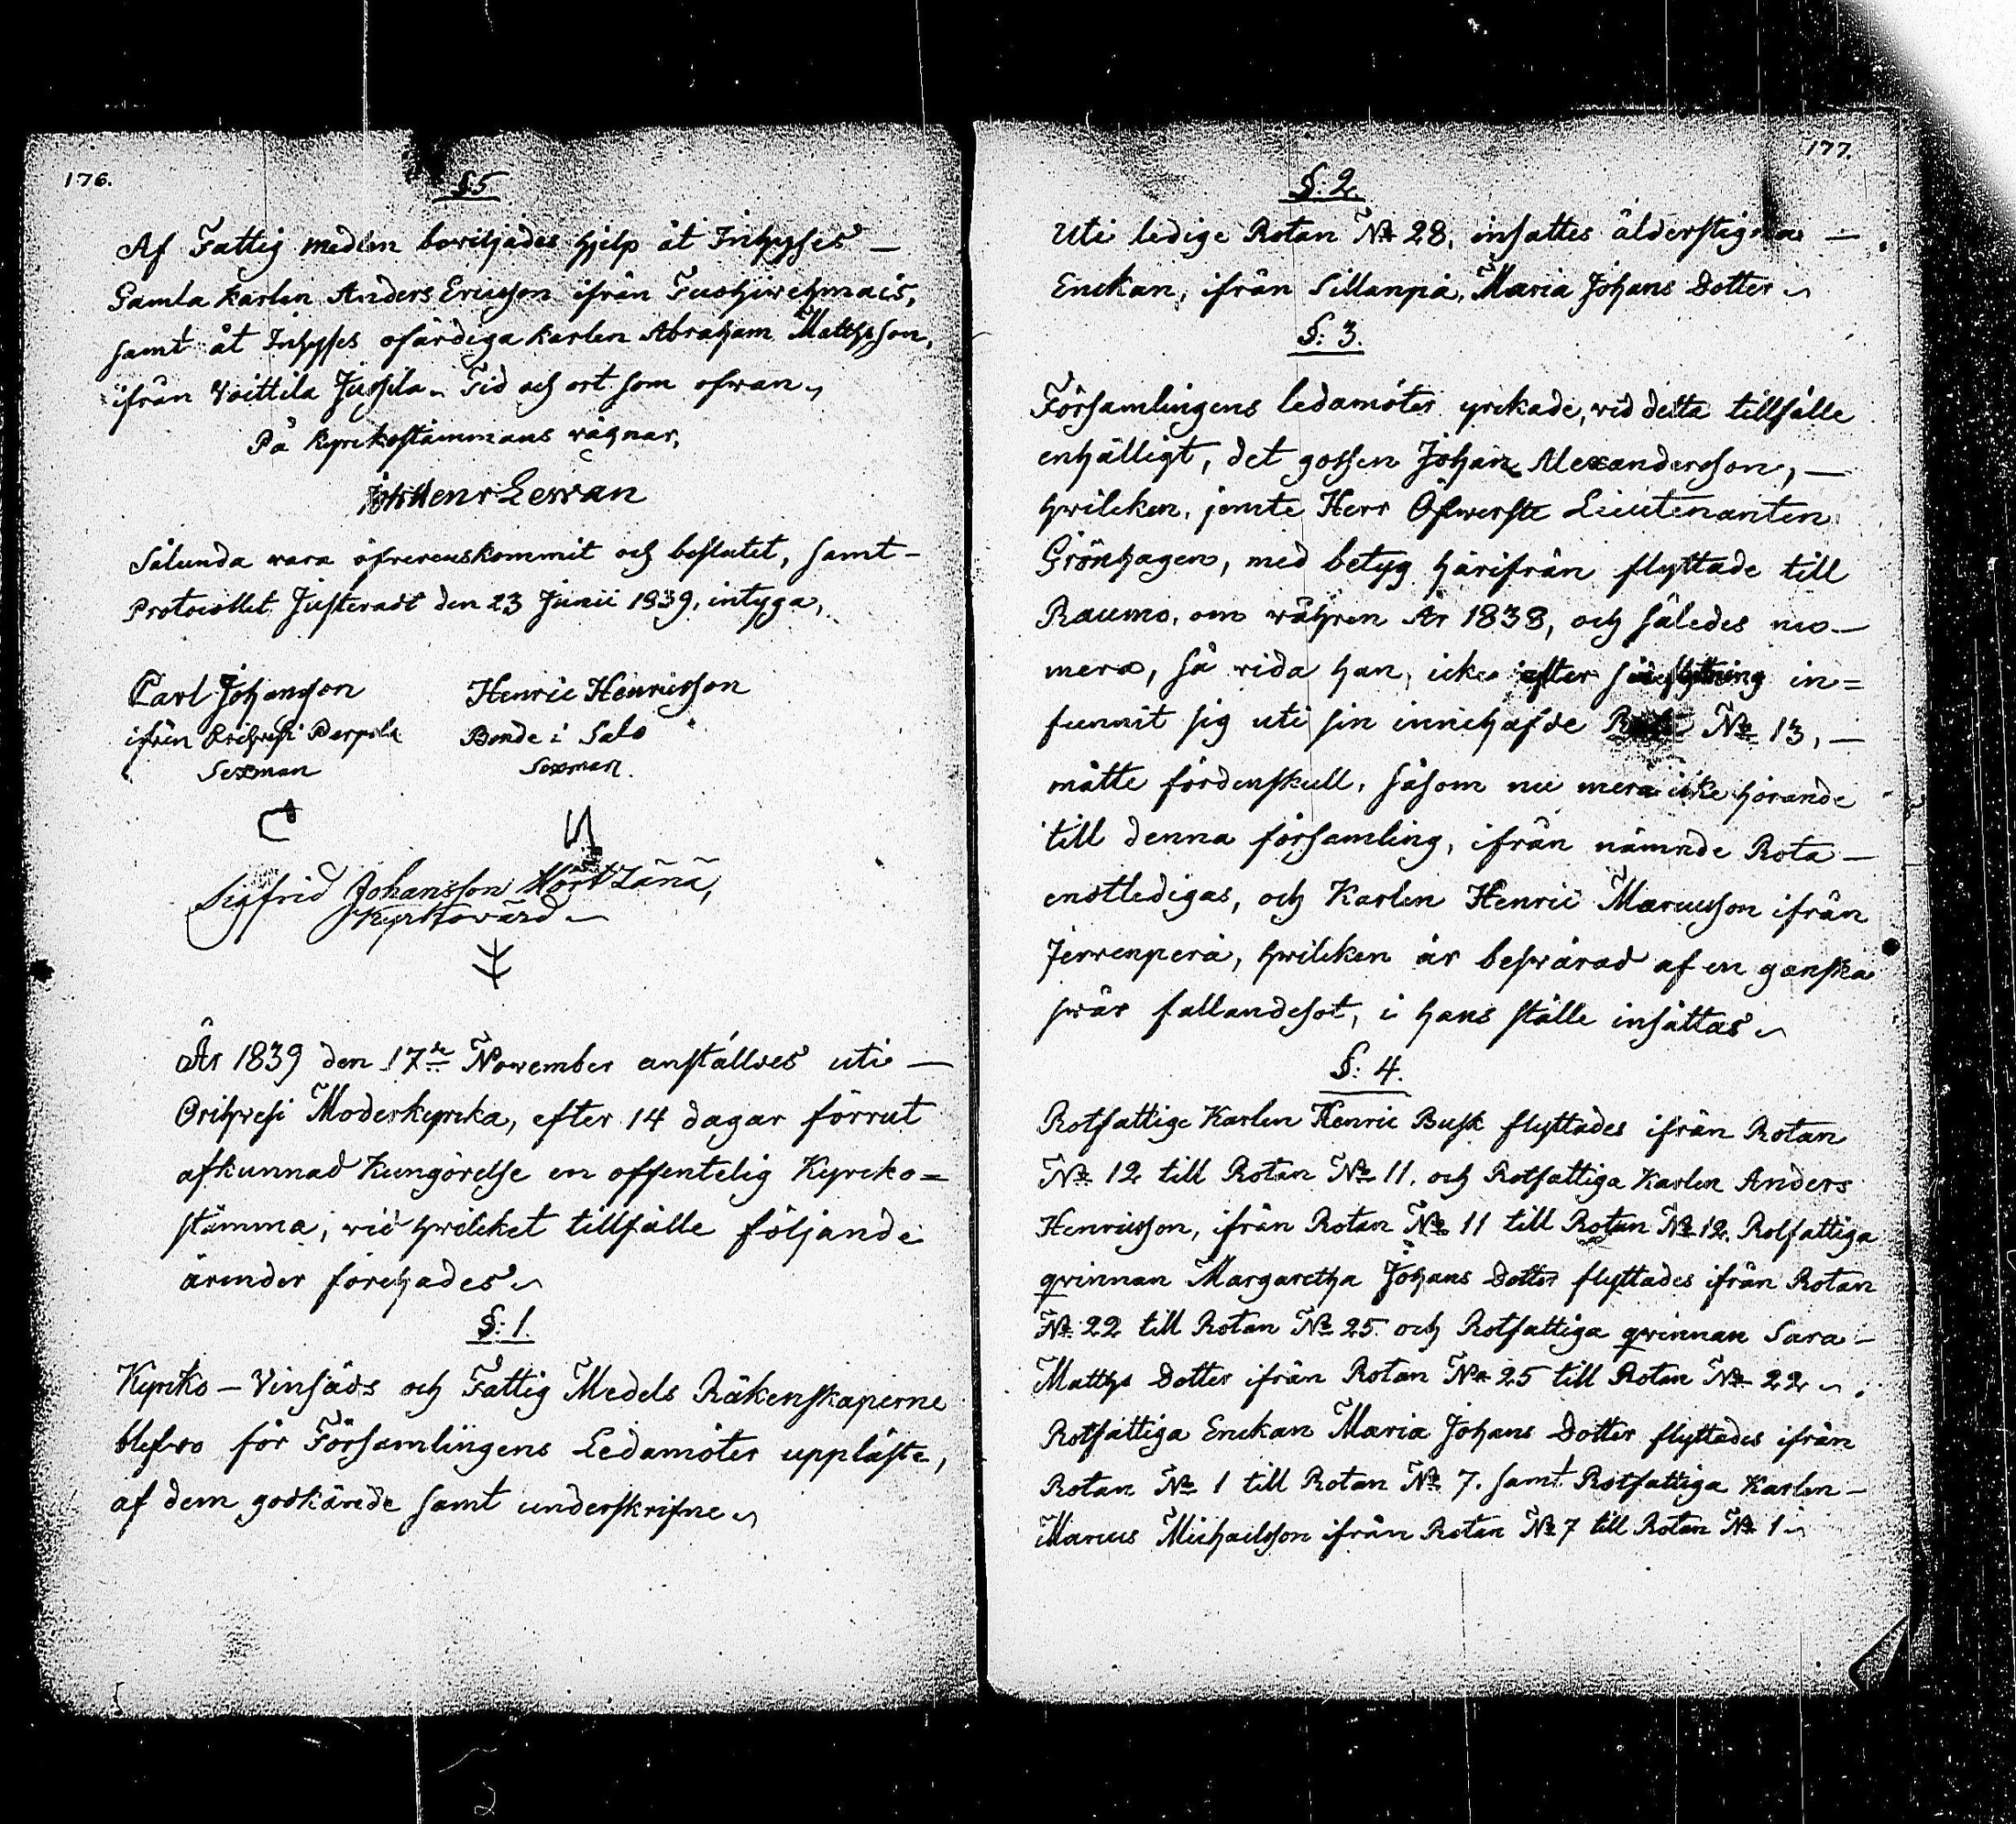 176.
§5
Af Fattig medlen beviljades hjelp åt Inhyses —
Gamla karlen Anders Ericsson ifrån
samt åt Inhyses ofärdiga karlen Abraham Matthsson,
ifrån Voittila Jussila. Tid och ort som ofwan
På Kyrkostämmans vägnar,
Lewan
Sålunda vara öfverenskommit och beslutet, samt —
Protocollet Justeradt den 23 Junii 1839, intyga,
Carl Johansson Henric Henricsson
ifrån Orihvesi Perpola Bonde i Salo
Sexman Sexman.
Sigfrid Johansson
Kyrkovärd
År 1839 den 17de November anställdes uti —
Orihvesi Moderkyrcka, efter 14 dagar förrut
afkunnad Kungörelse en offentelig Kyrcko=
stämma, vid hvilcket tillfälle följande
ärender förehades
§: 1.
Kyrcko — Vinsäds och Fattig Medels Räkenskaperne
blefvo för Församlingens Ledamöter uppläste,
af dem godkände samt underskrifne
177.
§: 2.
Uti ledige Rotan No 28, insattes ålderstigna —
Enckan, ifrån Sillanpä, Maria Johans Dotter
§: 3.
Församlingens ledamöter yrckade, vid detta tillfälle
enhälligt, det gossen Johan Alexandersson, —
hvilcken, jemte Herr Öfwerste Lieutenanten
Grönhagen, med betyg härifrån flyttade till
Raumo, om våhren År 1838, och således nu —
mera, så vida han, icke efter in=
funnit sig uti sin innehafde No 13, —
måtte fördenskull, såsom nu mera icke hörande
till denna församling, ifrån nämnde Rota —
endtledigas, och Karlen Henric Marcusson ifrån
Jervenperä, hvilcken är besvärad af en ganska
svår fallandesot, i hans ställe insättas
§: 4.
Rotfattige Karlen Henric Busk flyttades ifrån Rotan
No 12 till Rotan No 11, och Rotfattiga Karlen Anders
Henricsson, ifrån Rotan No 11 till Rotan No 12. Rotfattiga
qvinnan Margaretha Johans Dotter flyttades ifrån Rotan
No 22 till Rotan No 25 och Rotfattiga qvinnan Sara —
Matths Dotter ifrån Rotan No 25 till Rotan No 22
Rotfattiga Enckan Maria Johans Dotter flyttades ifrån
Rotan No 1 till Rotan No 7. samt Rotfattiga Karlen —
Marcus Michaelsson ifrån Rotan No 7 till Rotan No 1